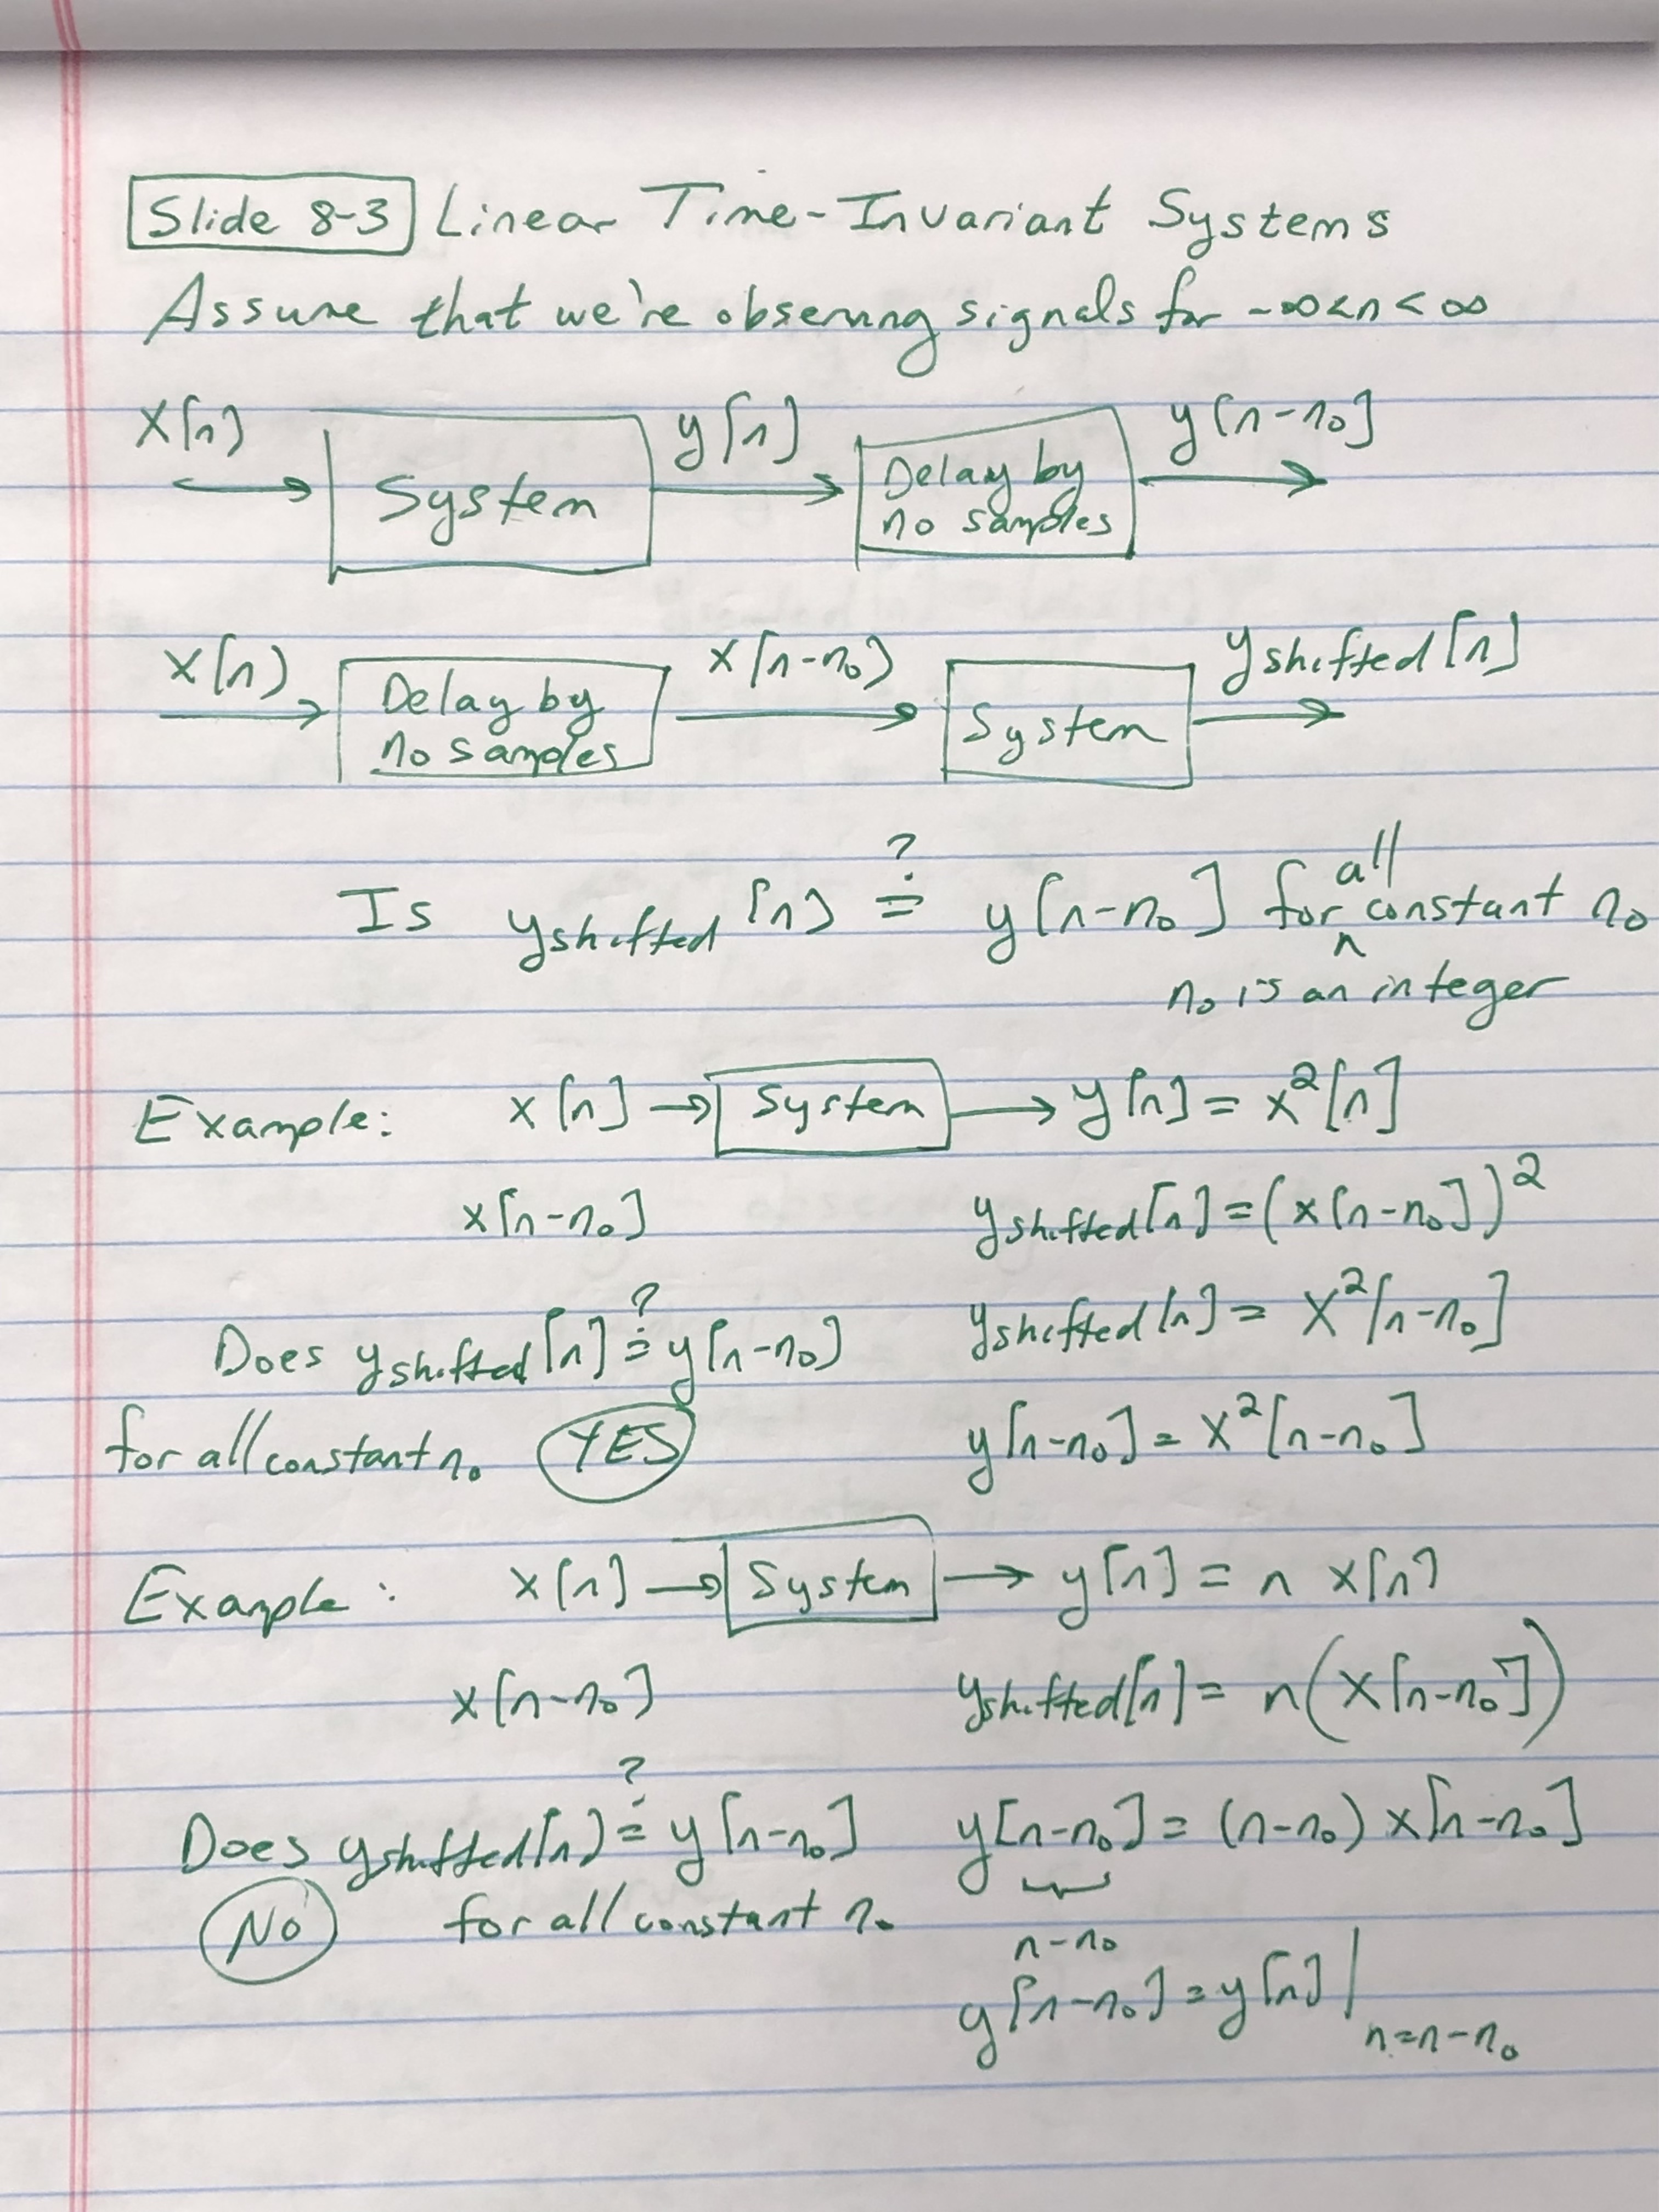 Slide 8-3 Linear Time-Invariant Systems
Assume that we're observing signals for -∞<n<∞
x[n] → System y[n] → Delay by n₀ samples y[n-n₀] →
x[n] → Delay by n₀ samples x[n-n₀] → System yshifted[n] →
Is yshifted[n] ≟ y[n-n₀] for all constant n₀
n
n₀ is an integer
Example: x[n] → System → y[n] = x²[n]
x[n-n₀] yshifted[n] = (x[n-n₀])²
Does yshifted[n] ≟ y[n-n₀] yshifted[n] = x²[n-n₀]
for all constant n₀ YES y[n-n₀] = x²[n-n₀]
Example: x[n] → System → y[n] = n x[n]
x[n-n₀] yshifted[n] = n(x[n-n₀])
Does yshifted[n] ≟ y[n-n₀] y[n-n₀] = (n-n₀) x[n-n₀]
No for all constant n₀ n-n₀
y[n-n₀] = y[n]| n=n-n₀